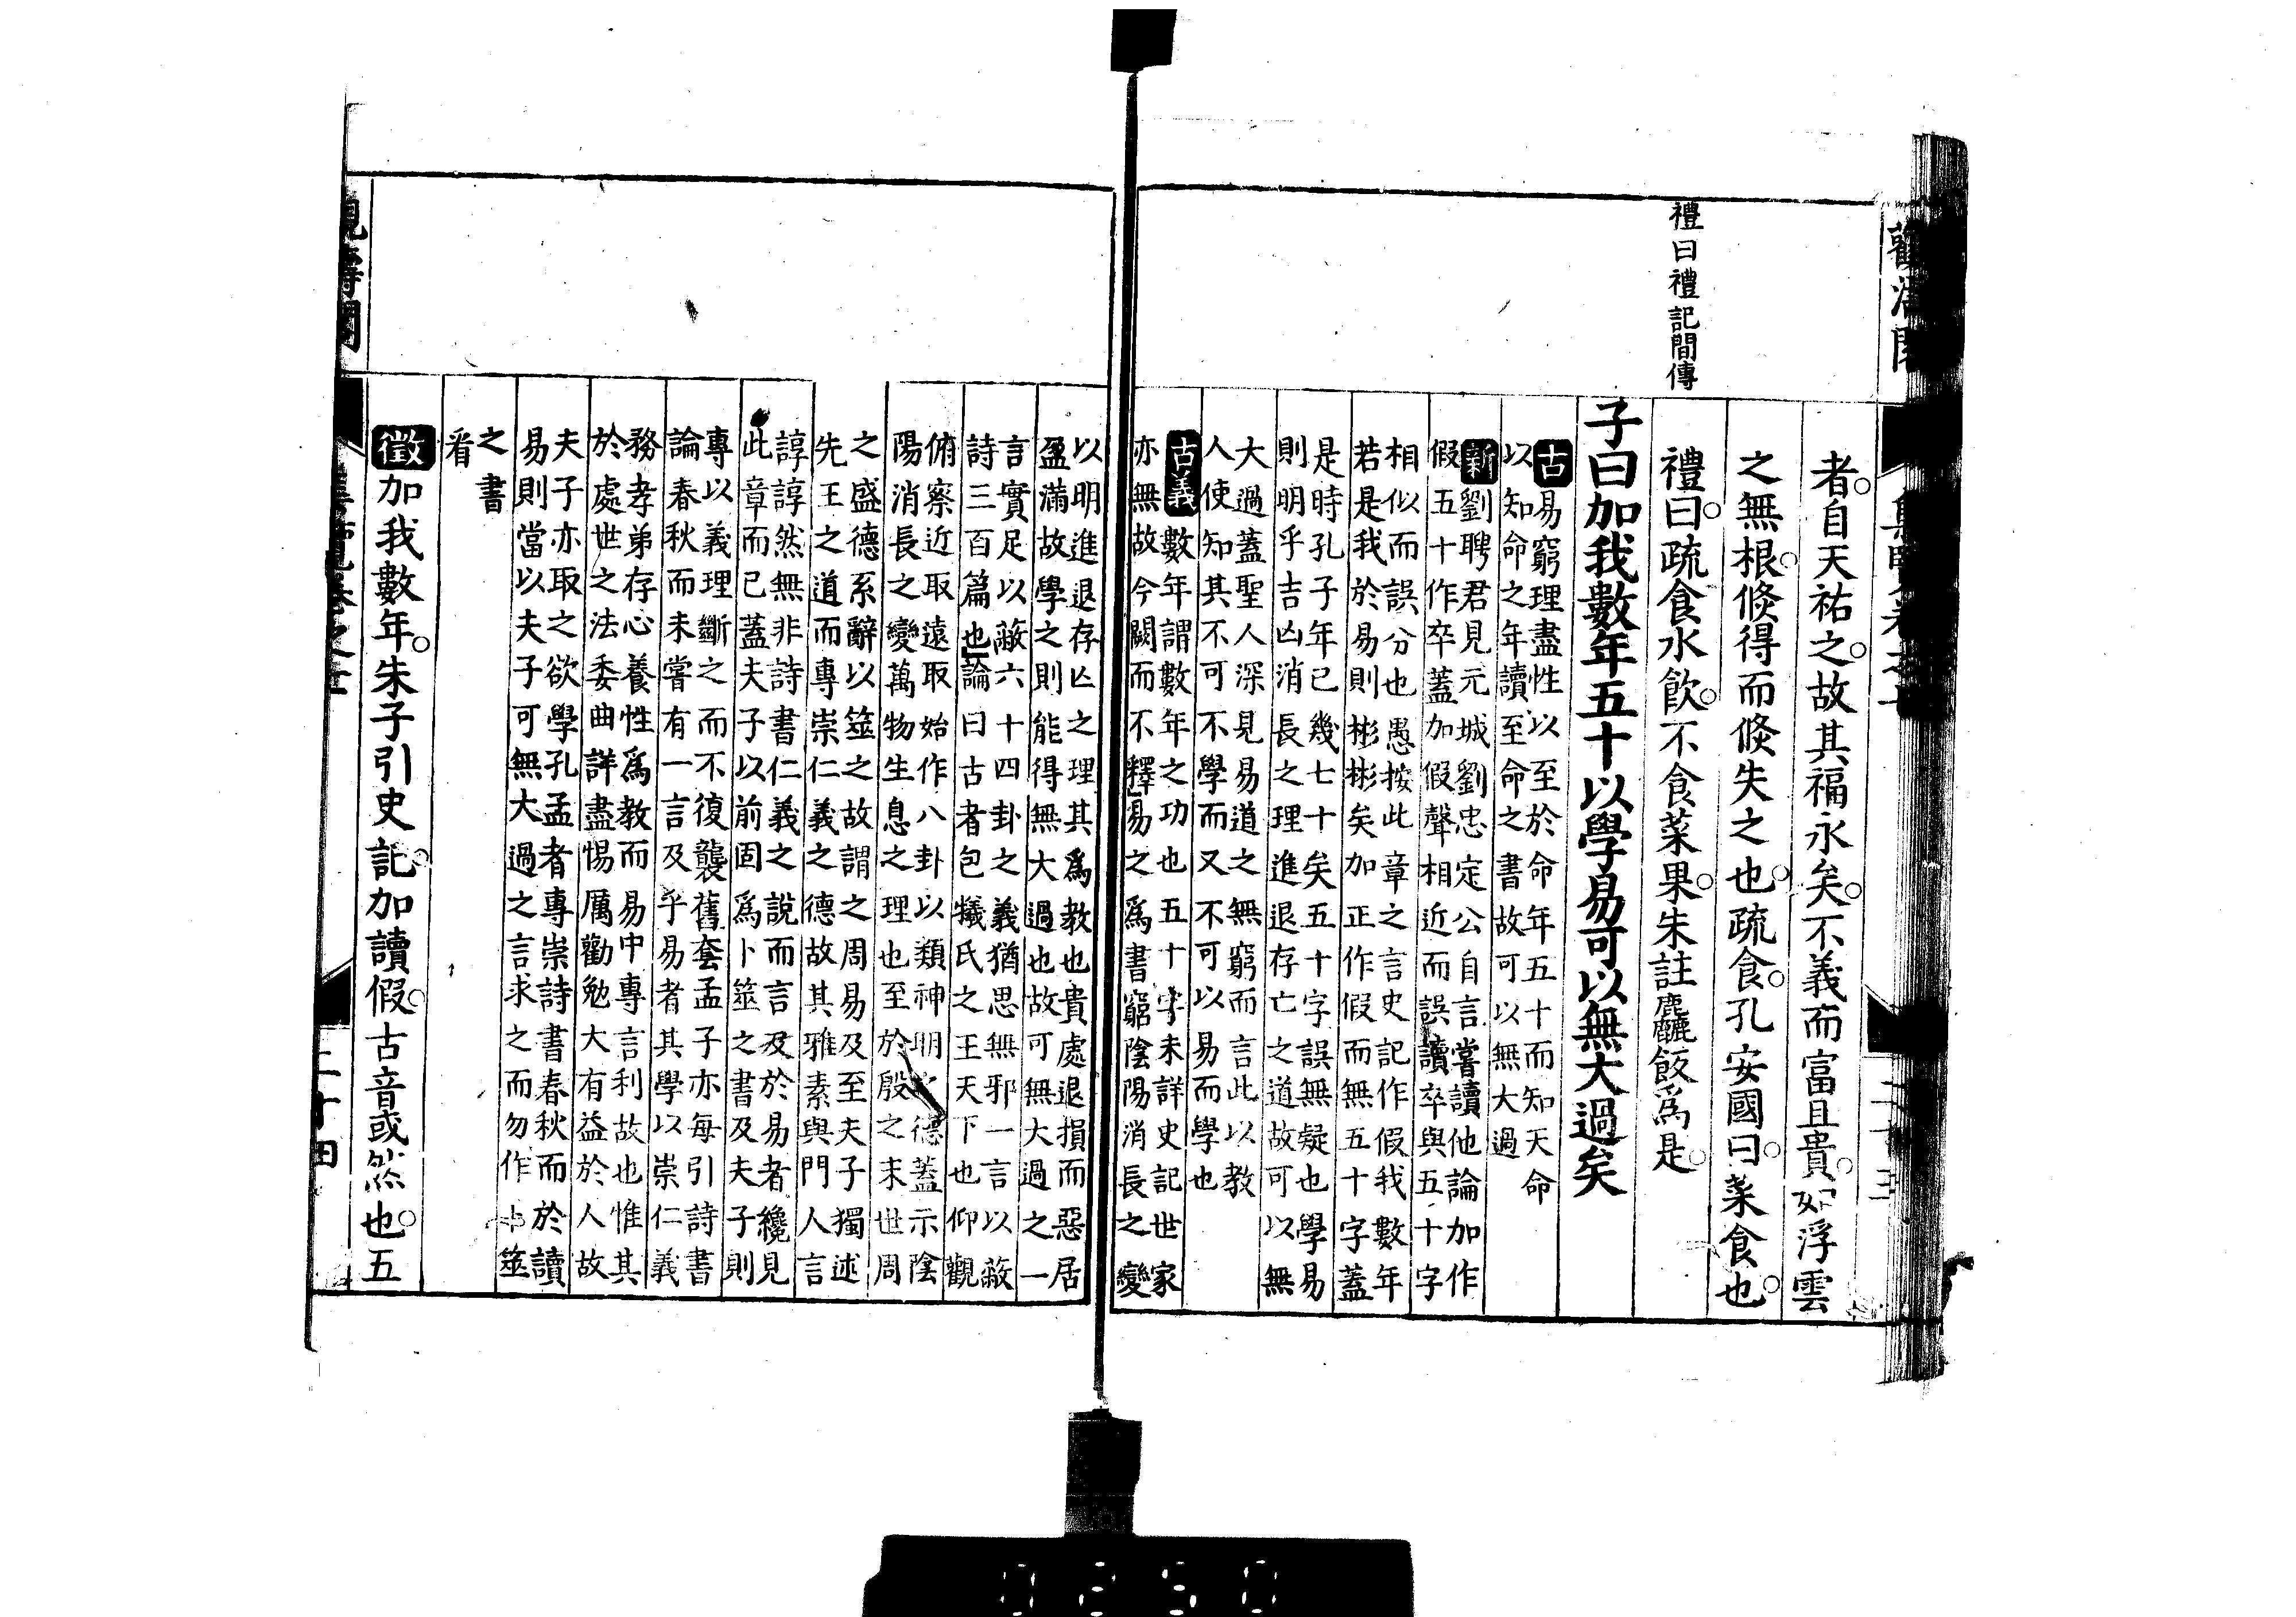 禮曰禮記間傳
者自天祐之故其福永矣不義而富且貴如浮雲
之無根倏得而倏失之也疏食孔安國曰菜食也
禮曰疏食水飮不食菜果朱註麤飯爲是
子曰加我數年五十以學易可以無大過矣
古易窮理盡性以至於命年五十而知天命
以知命之年讀至命之書故可以無大過
新劉聘君見元城劉忠定公自言嘗讀他論加作
假五十作卒蓋加假聲相近而誤讀卒與五十字
相似而誤分也愚按此章之言史記作假我數年
若是我於易則彬彬矣加正作假而無五十字蓋
是時孔子年已幾七十矣五十字誤無疑也學易
則明乎吉凶消長之理進退存亡之道故可以無
大過蓋聖人深見易道之無窮而言此以教
人使知其不可不學而又不可以易而學也
古義數年謂數年之功也五十字未詳史記世家
亦無故今闕而不釋易之爲書窮陰陽消長之變
以明進退存亡之理其爲教也貴處退損而惡居
盈滿故學之則能得無大過也故可無大過之一
言實足以蔽六十四卦之義猶思無邪一言以蔽
詩三百篇也論曰古者包犧氏之王天下也仰觀
俯察近取遠取始作八卦以類神明 德蓋示陰
陽消長之變萬物生息之理也至於殷之末世周
之盛德系辭以筮之故謂之周易及至夫子獨述
先王之道而專崇仁義之德故其雅素與門人言
諄諄然無非詩書仁義之說而言及於易者纔見
此章而已蓋夫子以前固爲卜筮之書及夫子則
專以義理斷之而不復襲舊套孟子亦每引詩書
論春秋而未嘗有一言及乎易者其學以崇仁義
務孝弟存心養性爲教而易中專言利故也惟其
於處世之法委曲詳盡惕厲勸勉大有益於人故
夫子亦取之欲學孔孟者專崇詩書春秋而於讀
易則當以夫子可無大過之言求之而勿作卜筮
之書
看
徵加我數年朱子引史記加讀假古音或然也五
二十四
0250